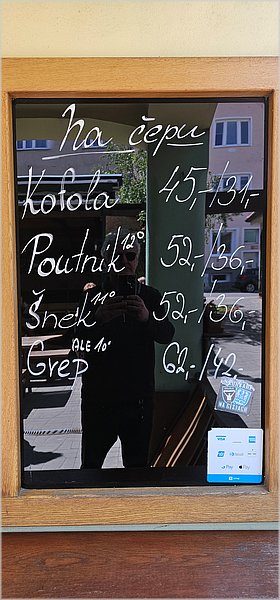 Na čepu
Kofola 45,-/31,-
Poutník 12° 52,-/36,-
Šnek 11° 52,-/36,-
Grep ALE 10° 62,-/42,-
VISA
Pay Pay